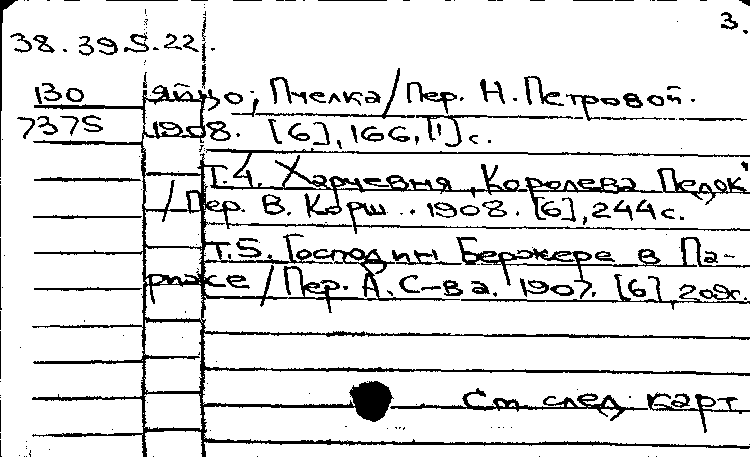 3.
38.39.5.22.
130 яйцо; Пчелка / Пер. Н. Петровой.
7375 1908. [6], 166, [1] с.
Т.4. Харчевня „Королева Педок"
/ Пер. В. Корш.. 1908. [6], 244 с.
Т.5. Господин Бержере в Па-
риже / Пер. А. С-ва. 1907. [6], 209с.
См след карт